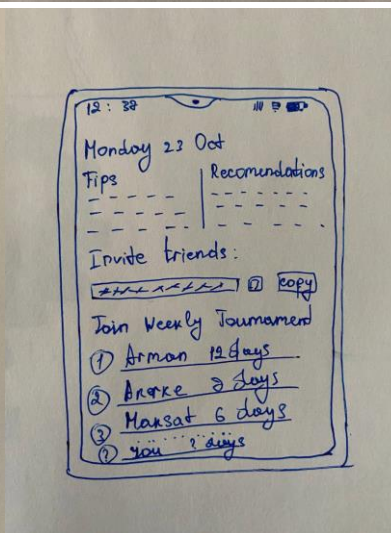 12 : 38
Monday 23 Oct
Tips
Recomendations
Invite friends :
copy
Join Weekly Tournament
1 Arman 12 days
2 days
3 Maksat 6 days
? you ? days